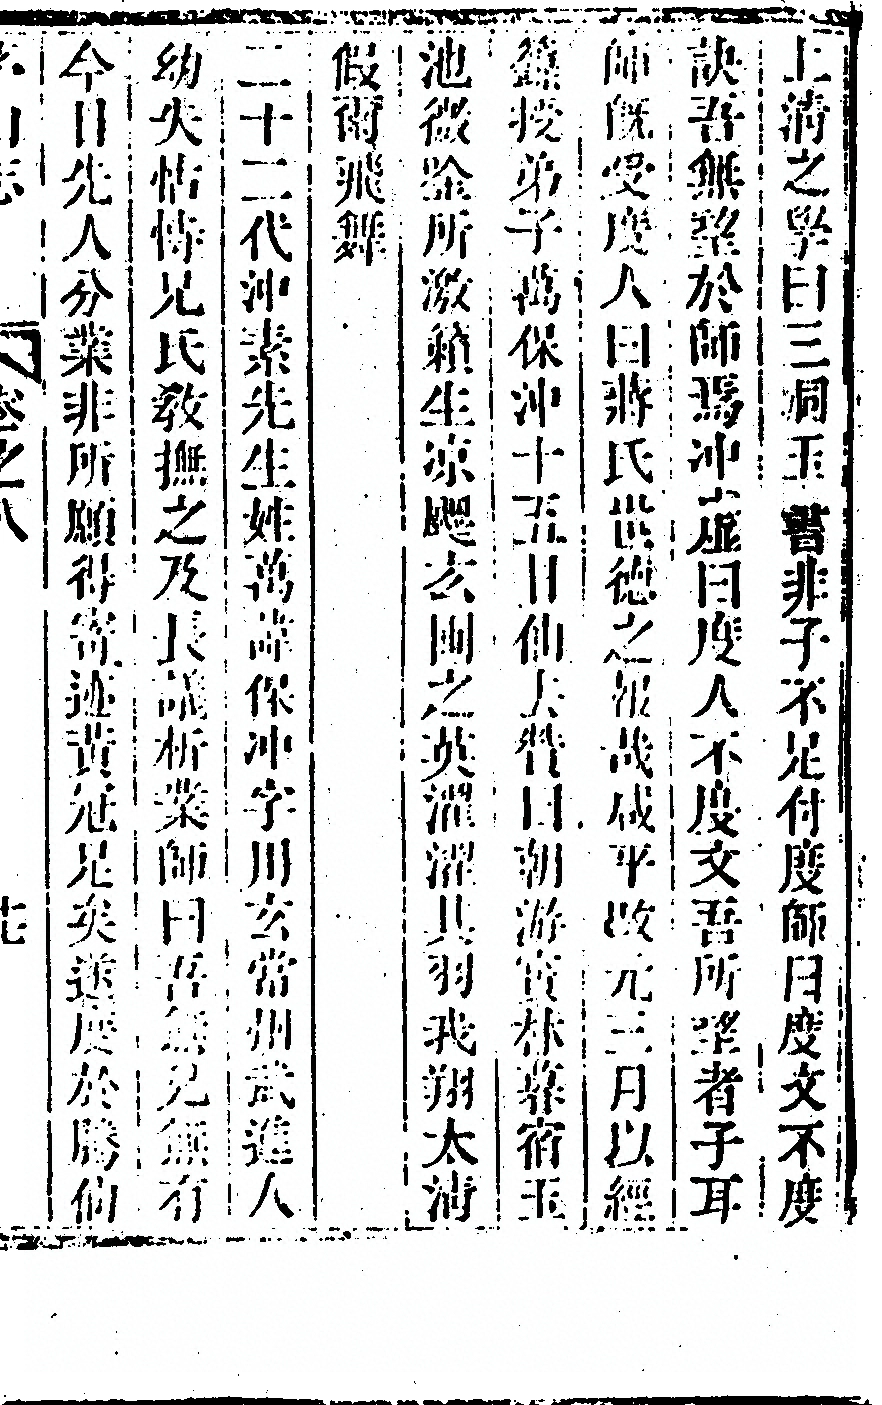 上清之學曰三洞玉書非子不足付度師曰度文不度
訣吾無望於師焉沖虛曰度人不度文吾所望者子耳
師既受度人曰蔣氏世德之報哉咸平改元三月以經
籙授弟子萬保沖十五日仙去贊曰朝游寳林暮宿玉
池微塗所激籟生凉飔玄圃之英濯濯其羽我翔太清
假爾飛舞
二十二代沖素先生姓萬諱保沖字用玄常州武進人
幼失怙恃兄氏教撫之及長議析業師曰吾無兄無有
今日先人分業非所願得寄迹黄冠足矣遂度於騰仙
茅山志
卷之八
十七